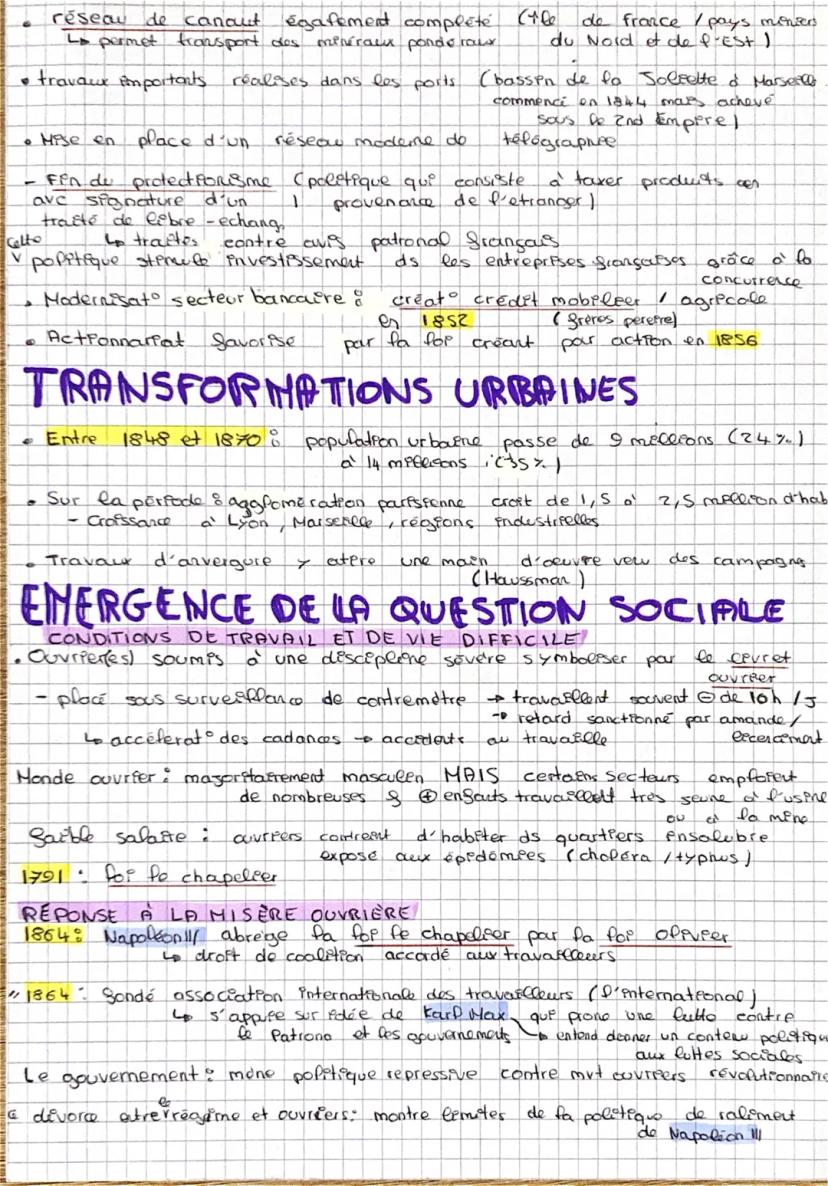 • réseau de canaut également complété (île de france / pays miniers
↳ permet transport des minéraux pondéraux du Nord et de l'Est)
• travaux importants réalisés dans les ports (bassin de la Joliette à Marseille
commencé en 1844 mais achevé
sous le 2nd Empire)
• Mise en place d'un réseau moderne de télégraphie
- Fin du protectionisme (politique qui consiste à taxer produits en
avc signature d'un provenance de l'etranger)
traité de libre-echang
↳ traités contre avis patronal français
cette politique stimule investissement ds les entreprises françaises grâce à la
concurrence
• Modernisat° secteur bancaire : créat° crédit mobilier / agricole
en 1852 (frères pereire)
• Actionnariat favorise par la loi créant par action en 1856
TRANSFORMATIONS URBAINES
• Entre 1848 et 1870 : population urbaine passe de 9 millions (24 %)
à 14 millions (35 %)
• Sur la période : agglomération parisienne croit de 1,5 à 2,5 million d'hab
- Croissance à Lyon, Marseille, régions industrielles
• Travaux d'anvergure y attire une main d'oeuvre venu des campagns
(Haussman)
EMERGENCE DE LA QUESTION SOCIALE
CONDITIONS DE TRAVAIL ET DE VIE DIFFICILE
• Ouvrier(es) soumis à une discipline sévère symboliser par le livret
ouvrier
- placé sous surveillance de contremêtre → travaillent souvent ⊖ de 10h / J
→ retard sanctionné par amande /
↳ accélerat° des cadances → accidents au travaille licenciement
Monde ouvrier : majoritairement masculin MAIS certains secteurs emploient
de nombreuses f ⊕ enfants travaillent très jeune à l'usine
ou à la mine
faible salaire : ouvriers contreint d'habiter ds quartiers insalubre
exposé aux épidémies (choléra / typhus)
1791 : loi le chapelier
RÉPONSE À LA MISÈRE OUVRIÈRE
1864 : Napoléon III abrège la loi le chapelier par la loi olivier
↳ droit de coalition accordé aux travailleurs
" 1864 : fondé association internationale des travailleurs (l'international)
↳ s'appuie sur idée de Karl Max que prone une lutte contre
le Patrona et les gouvernements ↳ entend donner un contenu politique
aux luttes sociales
Le gouvernement : mène politique repressive contre mvt ouvriers révolutionnaire
divorce entre le régime et ouvriers : montre limites de la politique de raliment
de Napoléon III